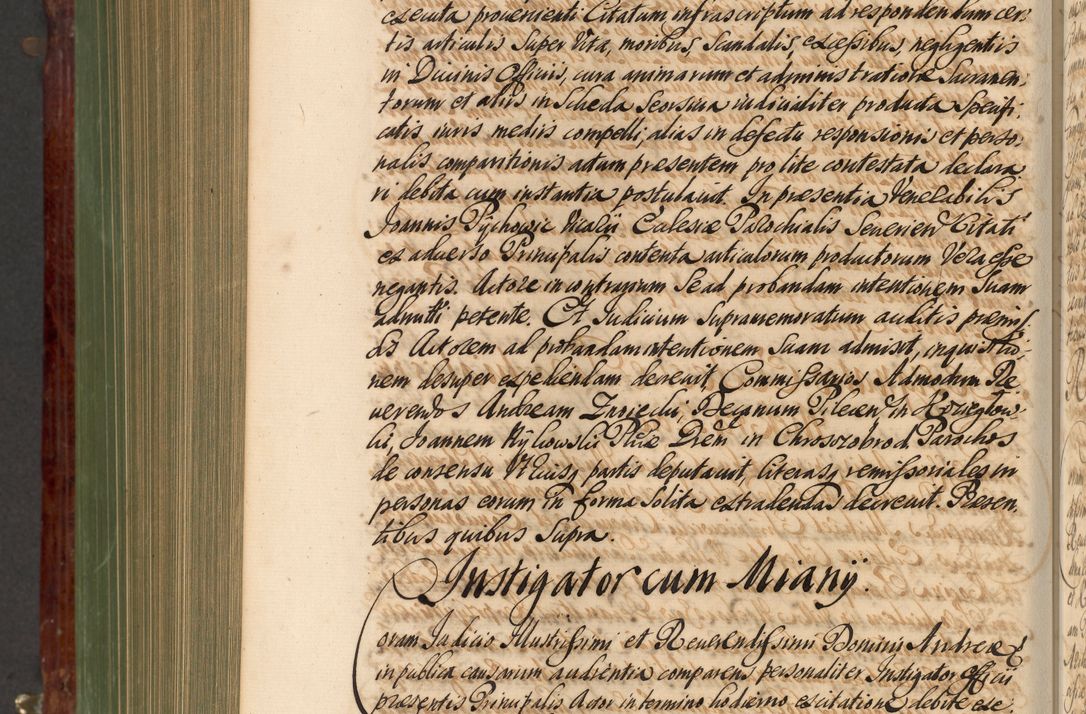 executa provenienti Citatum infrascriptum ad respondendum cer
tis articulis super vita, moribus, scandalis, excessibus, negligentiis
in Divinis Officiis, cura animarum et administratione Sacramen
torum et aliis in scheda seorsiva iudicialiter producta specifi,
catis iuris mediis compelli, alias in defectu responsionis et perso,
nalis comparitionis actum presentem pro lite contestata declara
ri debita cum instantia postulavit. In præsentia Venerabilis
Joannis Pychowic Vicarij Ecclesiæ Parochialis Severien Citati
ex adverso Principalis contenta articulorum productorum Vera esse
negantis. Actore in contrarium se ad probandam intentionem suam
admitti petente. Et Judicium supramemoratum auditis præmis,
sis Actorem ad probandam intentionem suam admisit, inquisitio,
nem desuper expediendam decrevit Commissarios Admodum Re
verendos Andream Decanum Pilecen in Koziegłow
ki, Joannem in Chroszobrod Parochos
de consensu utriusq partis deputavit, literasq remissoriales in
personas eorum in forma solita extradendas decrevit. Præsen,
tibus quibus supra.
Instigator cum Mianij.
Coram Judicio Illustrissimi et Reverendissimi Domini Andreæ E
in publica causarum audientia comparens personaliter Instigator Officii
præsentis Principalis Actor in termino hodierno ex citatione debite exe,